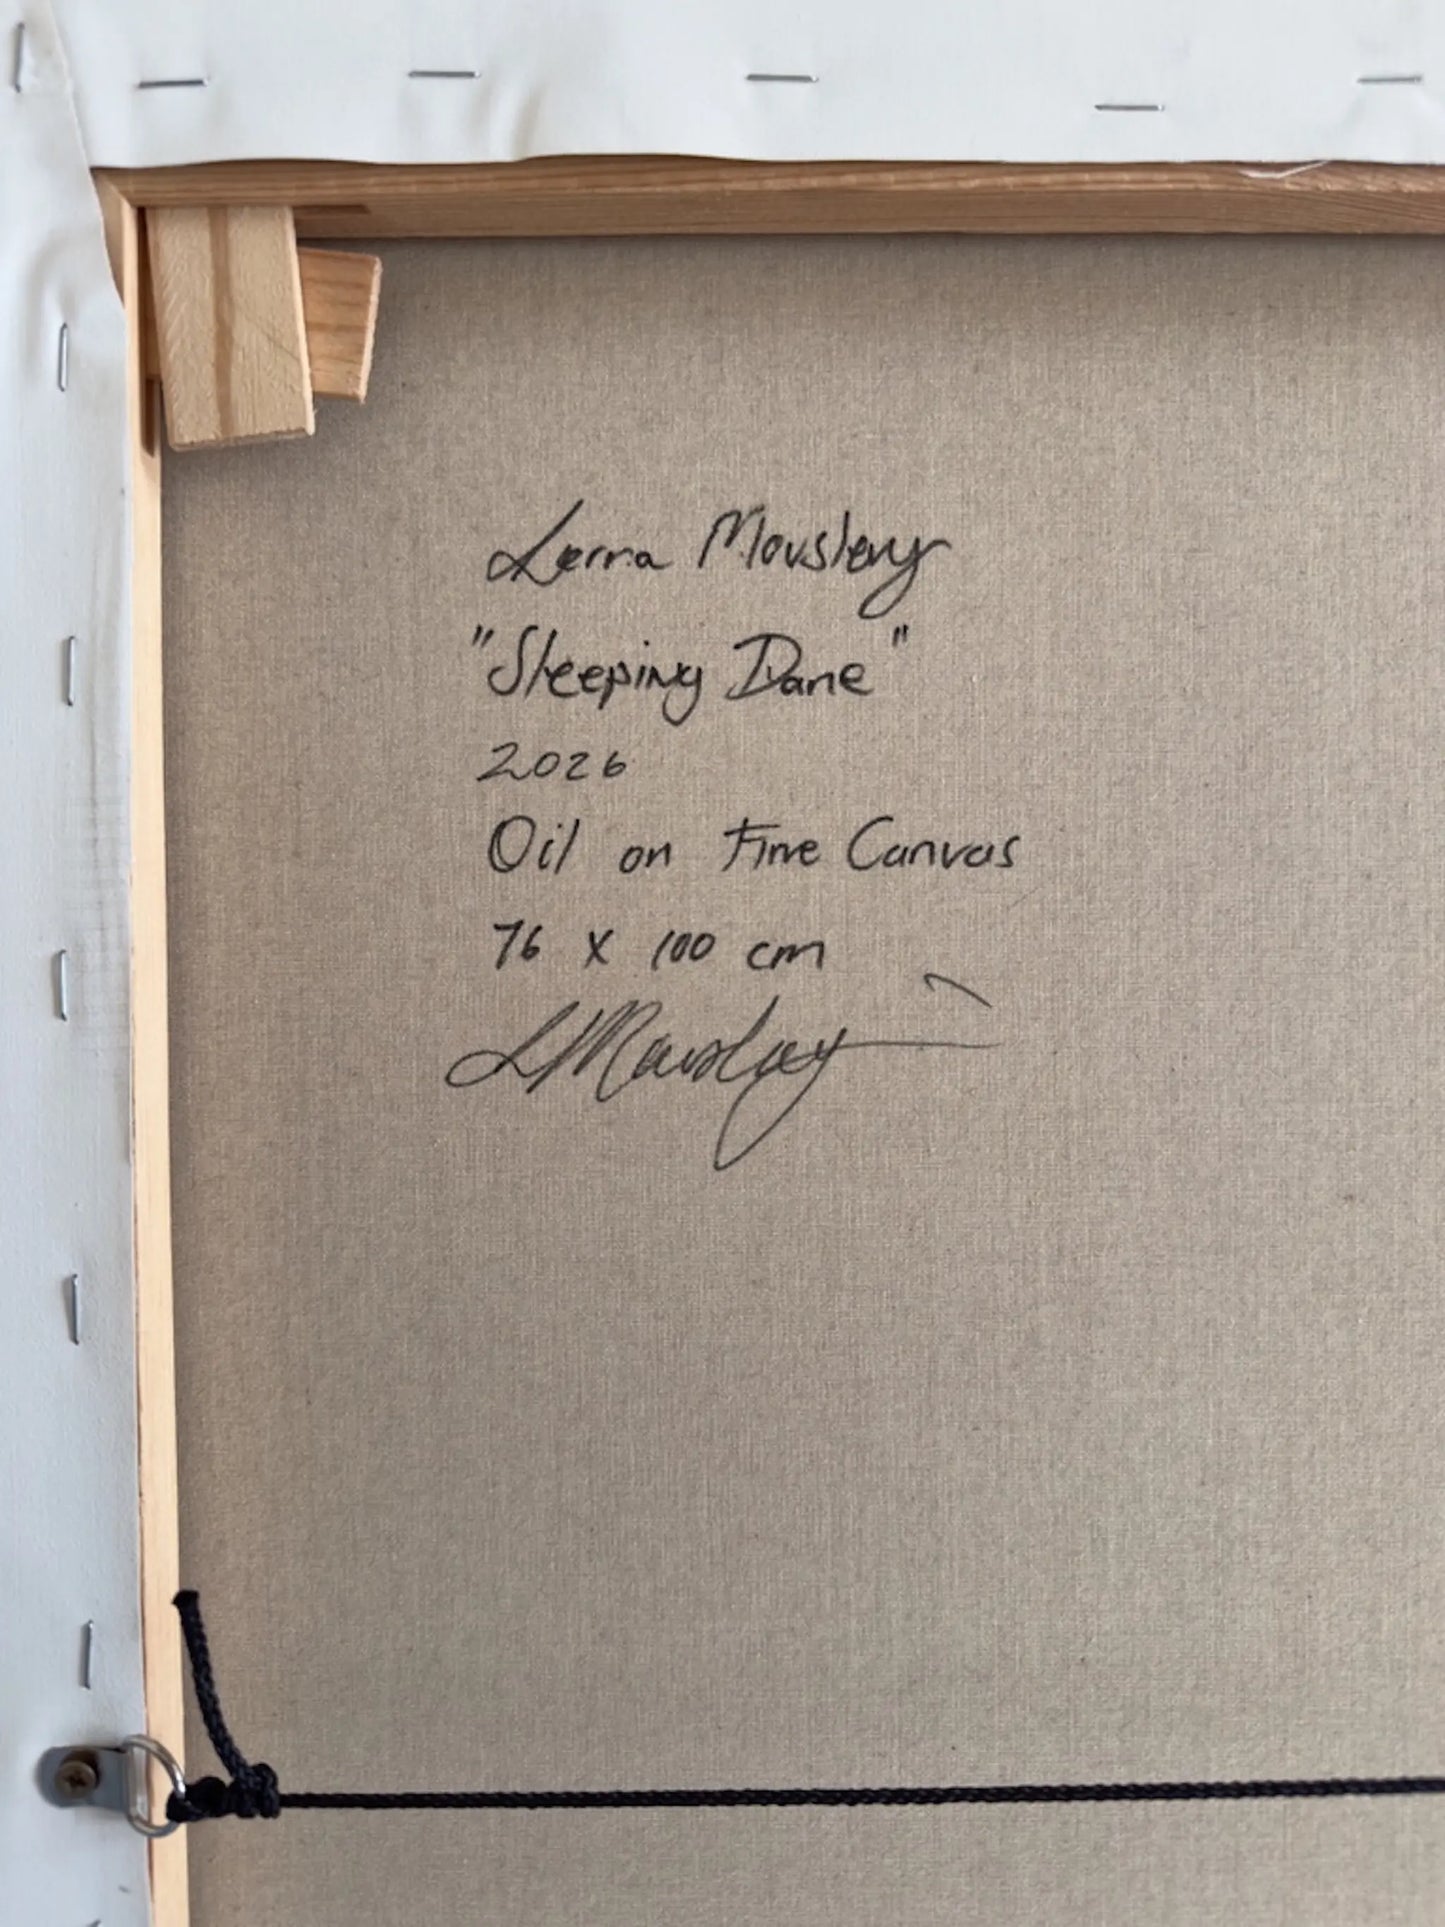 Lerra Mousley
"Sleeping Dane"
2026
Oil on Fine Canvas
76 x 100 cm
LMousley